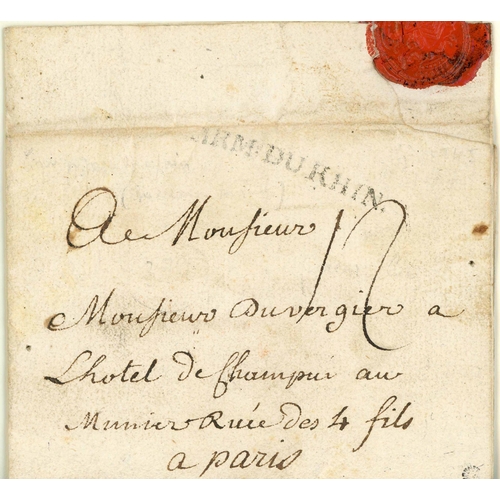 ARM: DU RHIN.
A Monsieur
12
Monsieur Duvergier a
Lhotel de Champui au
Ruée des 4 fils
a paris